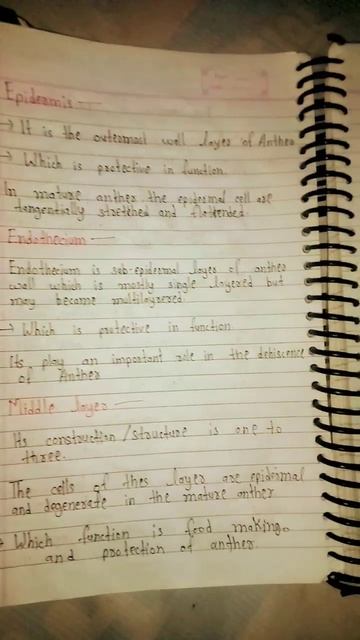 Epidermis —
→ It is the outermost wall layer of Anther
→ Which is protective in function.
In mature anther the epidermal cell are
tangentially stretched and flattended.
Endothecium —
Endothecium is sub-epidermal layer of anther
wall which is mostly single layered but
may become multilayered.
→ Which is protective in function.
Its play an important role in the dehiscence
of Anther
Middle layer —
Its construction/structure is one to
three.
The cells of thes layer are epidirmal
and degenerate in the mature anther
→ Which function is food making.
and protection of anther.